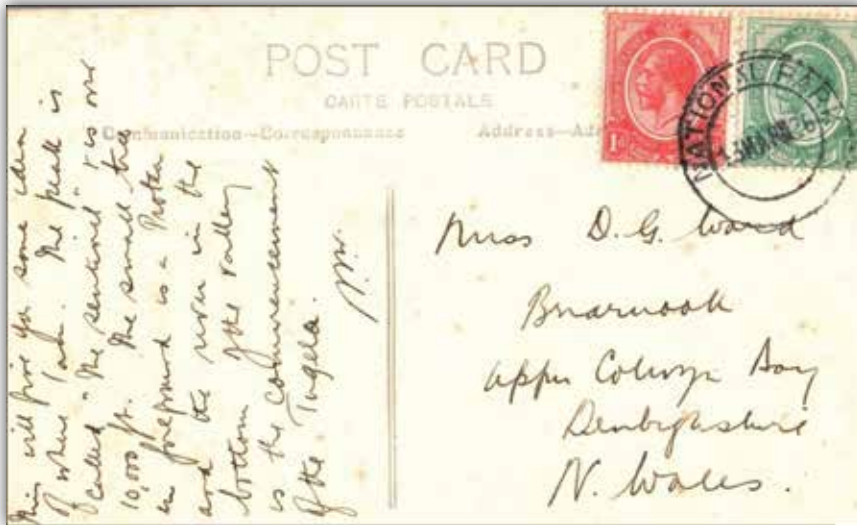 POST CARD
CARTE POSTALE
Communication-Correspondance
Address-Ad
1D
NATIONAL PARK
MAR 26
This will give you some idea
of where I am. The peak is
called "The sentinel" & is over
10,000 ft. The small tree
in foreground is a Protea
and the river in the
bottom of the valley
is the commencement
of the Tugela.
Miss D.G. Ward
Briarnook
Upper Colwyn Bay
Denbighshire
N. Wales.